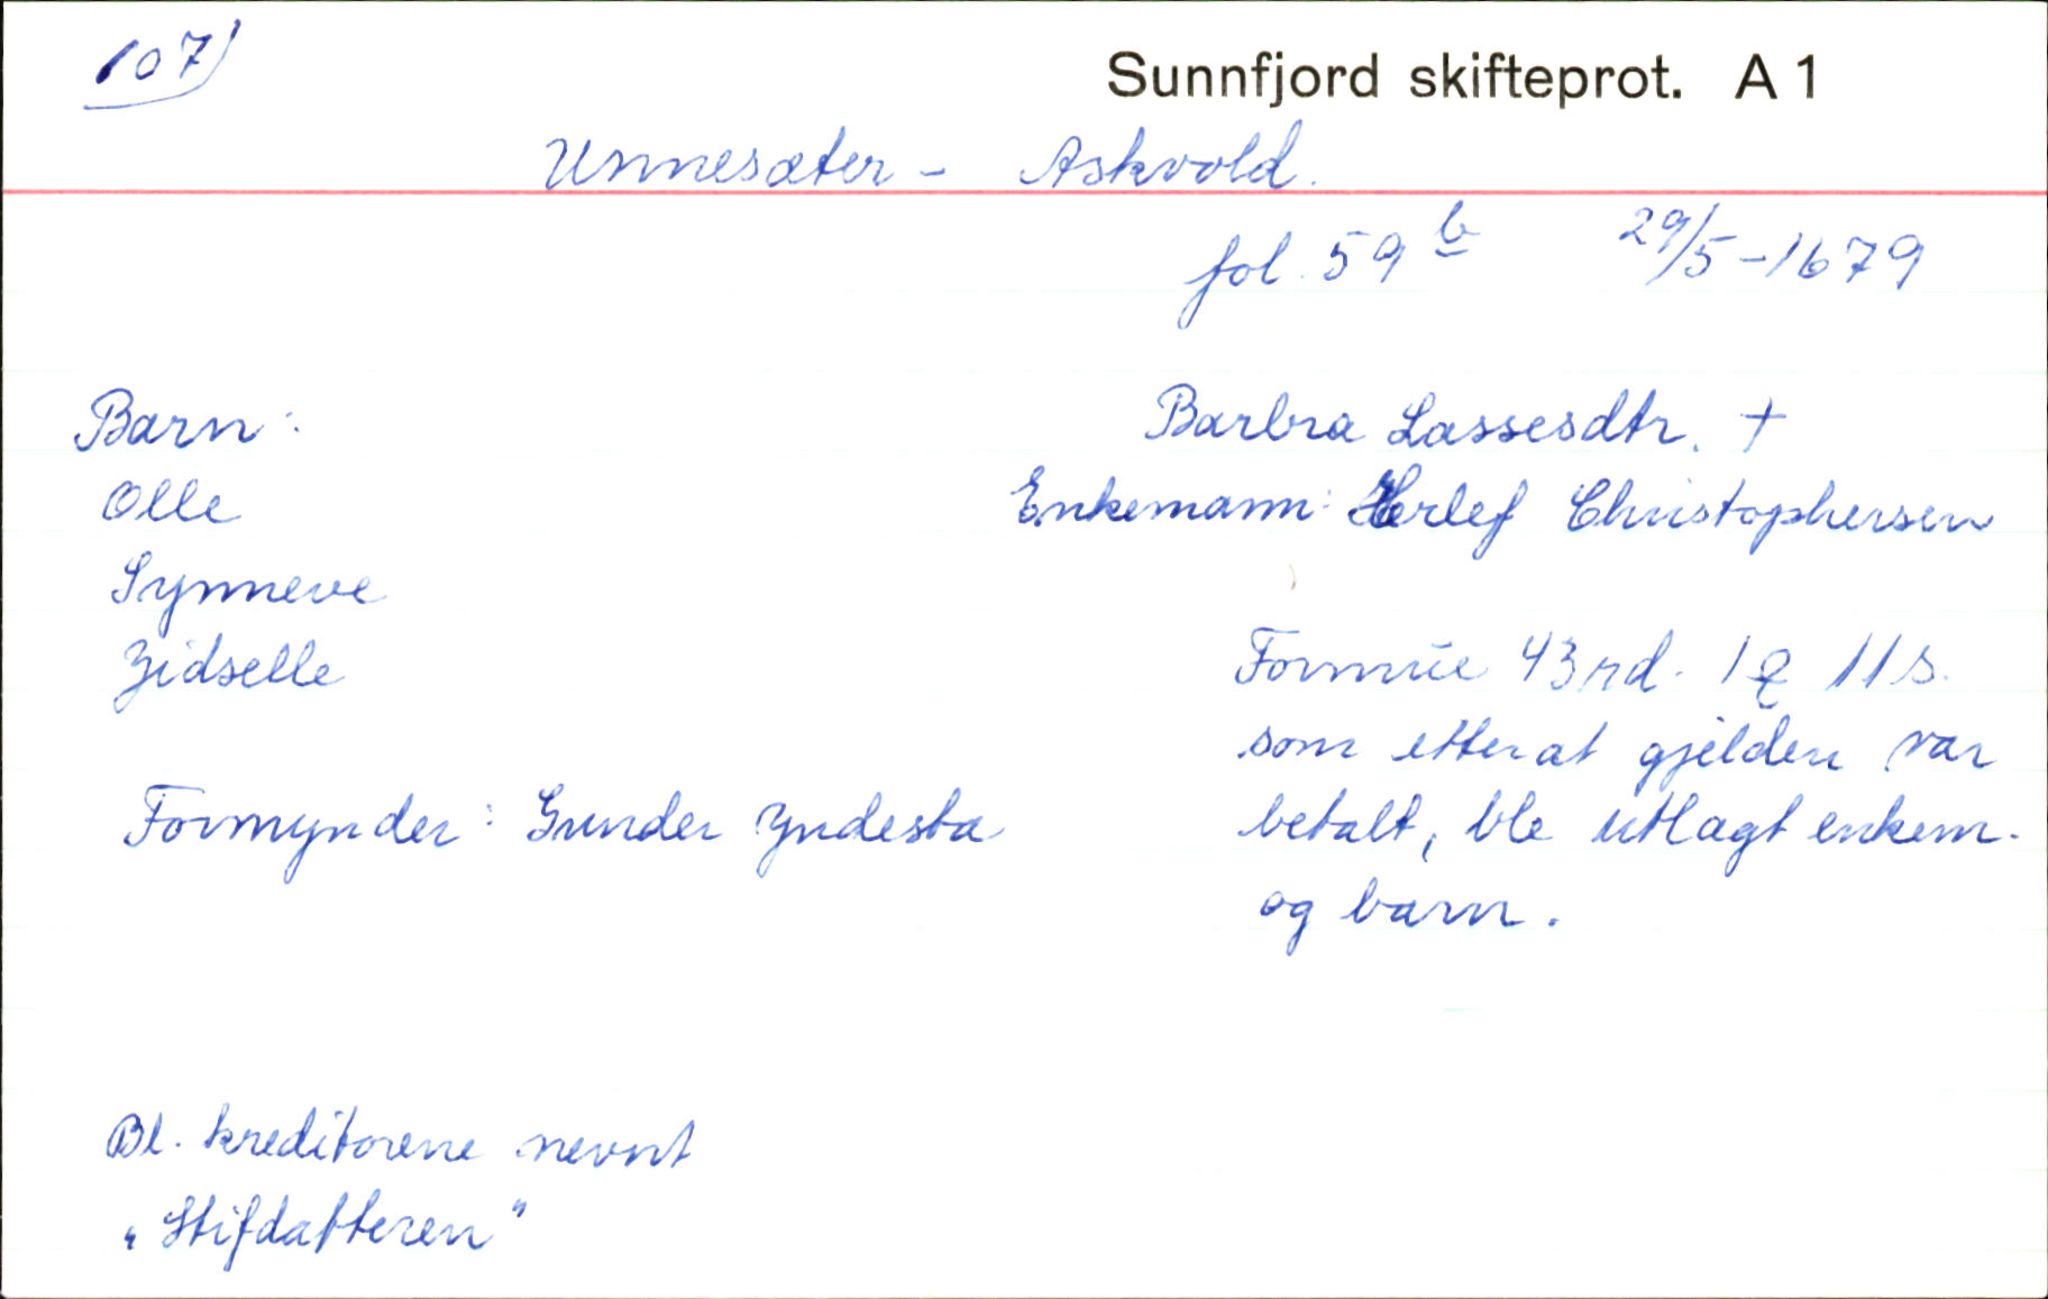 107)
Sunnfjord skifteprot. A 1
Unnesæter - Askvold.
fol. 59 b 29/5-1679
Barn:
Barbra Lassesdtr. †
Olle
Enkemann: Herlef Christophersen
Synneve
Zidselle
Formue 43 rd. 1 11 s.
som etter at gjelden var
Formynder: Gunder Yndesta
betalt, ble utlagt enkem.
og barn.
Bl. kreditorene nevnt
„Stifdatteren"